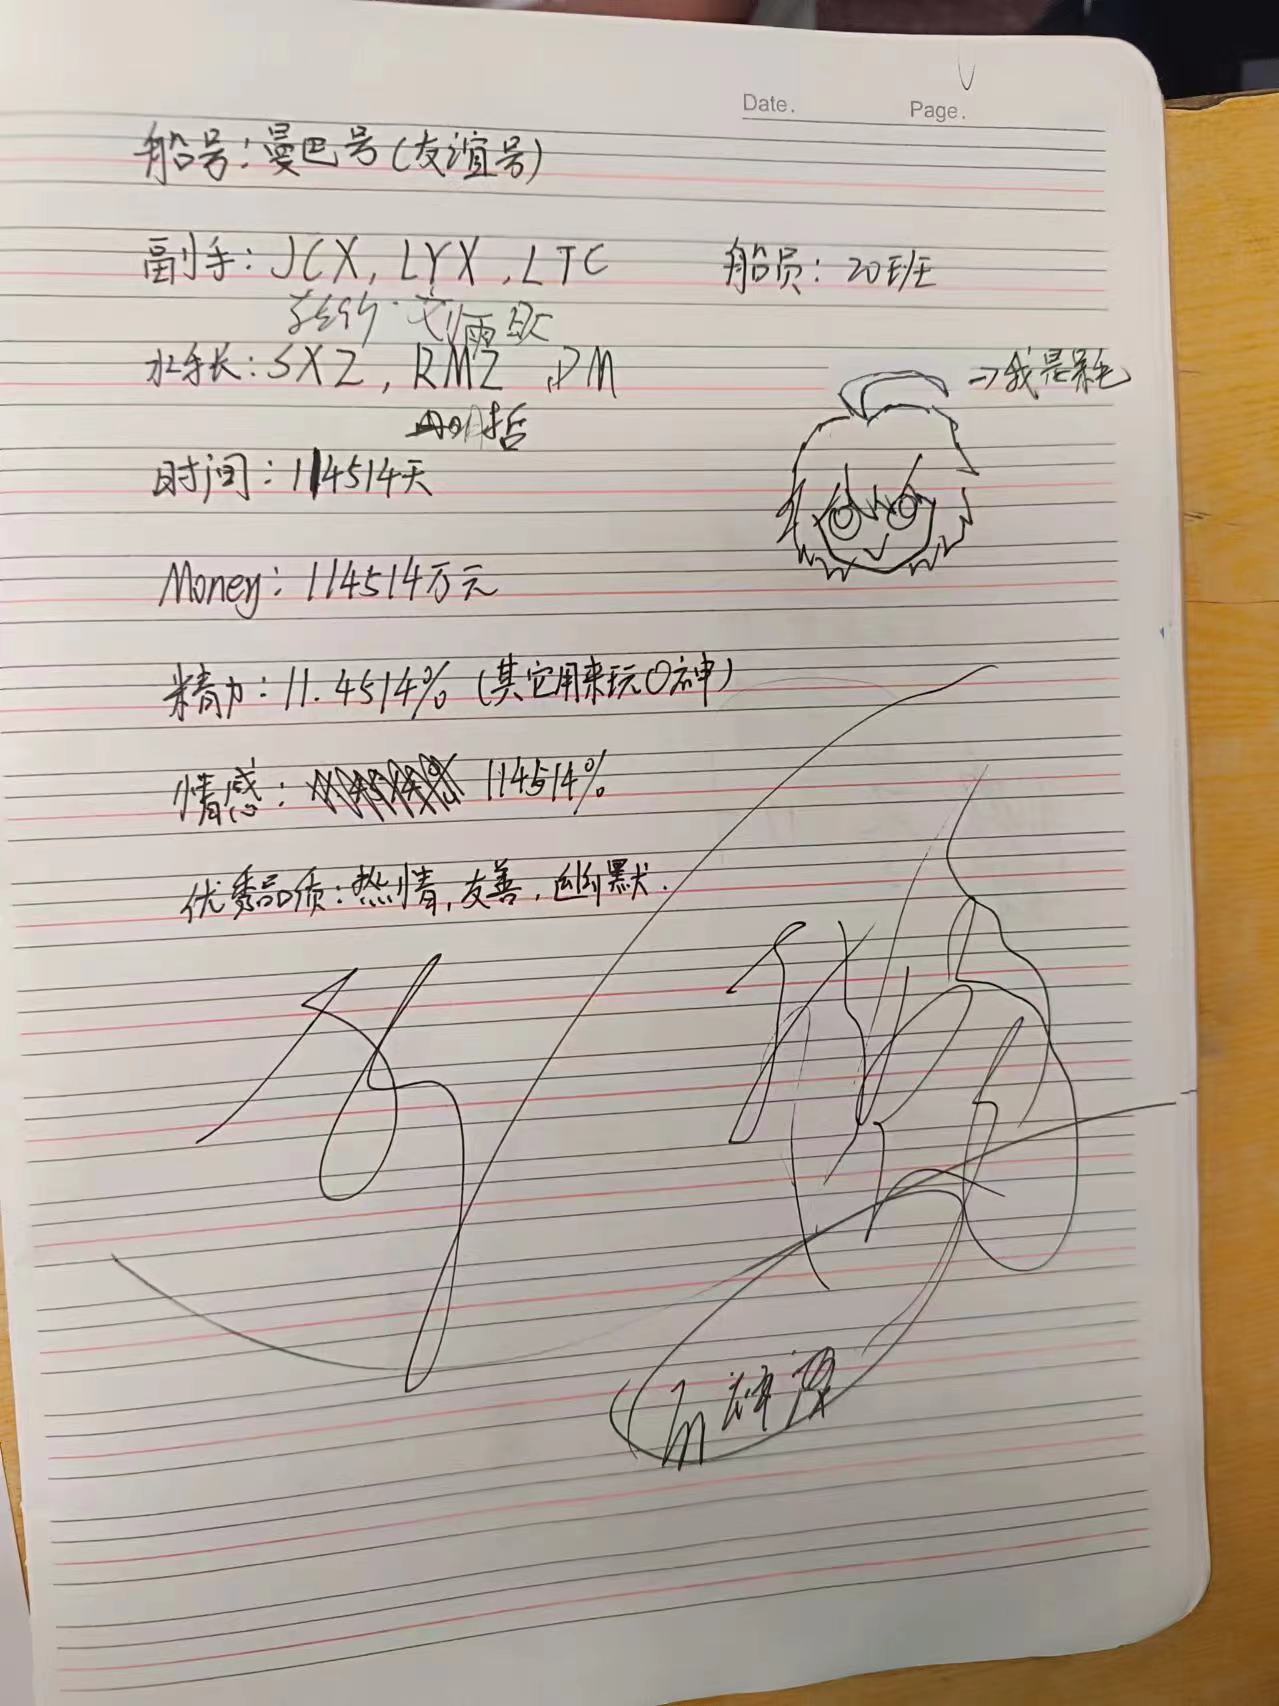 Date. Page.
船号：曼巴号（友谊号）
副手：JCX，LYX，LTC 船员：20班
水手长：SXZ，RMZ，DM
→我是呆毛
明哲
时间：114514天
Money：114514万元
精力：11.4514%（其它用来玩O神）
情感：114514%
优秀品质：热情，友善，幽默.